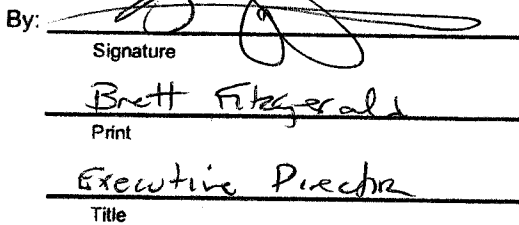 By:
Signature
Brett Fitzgerald
Print
Executive Director
Title